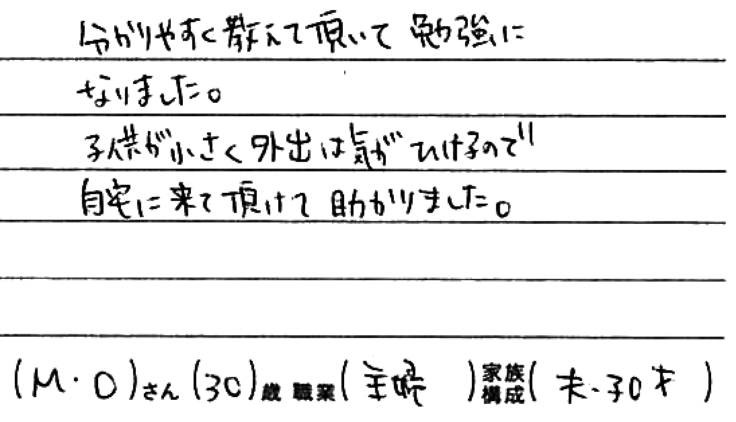 分かりやすく教えて頂いて 勉強に
なりました。
子供が小さく外出は気がひけるので
自宅に来て頂けて助かりました。
(M・O)さん(30)歳 職業(主婦)家族構成(夫・30才)